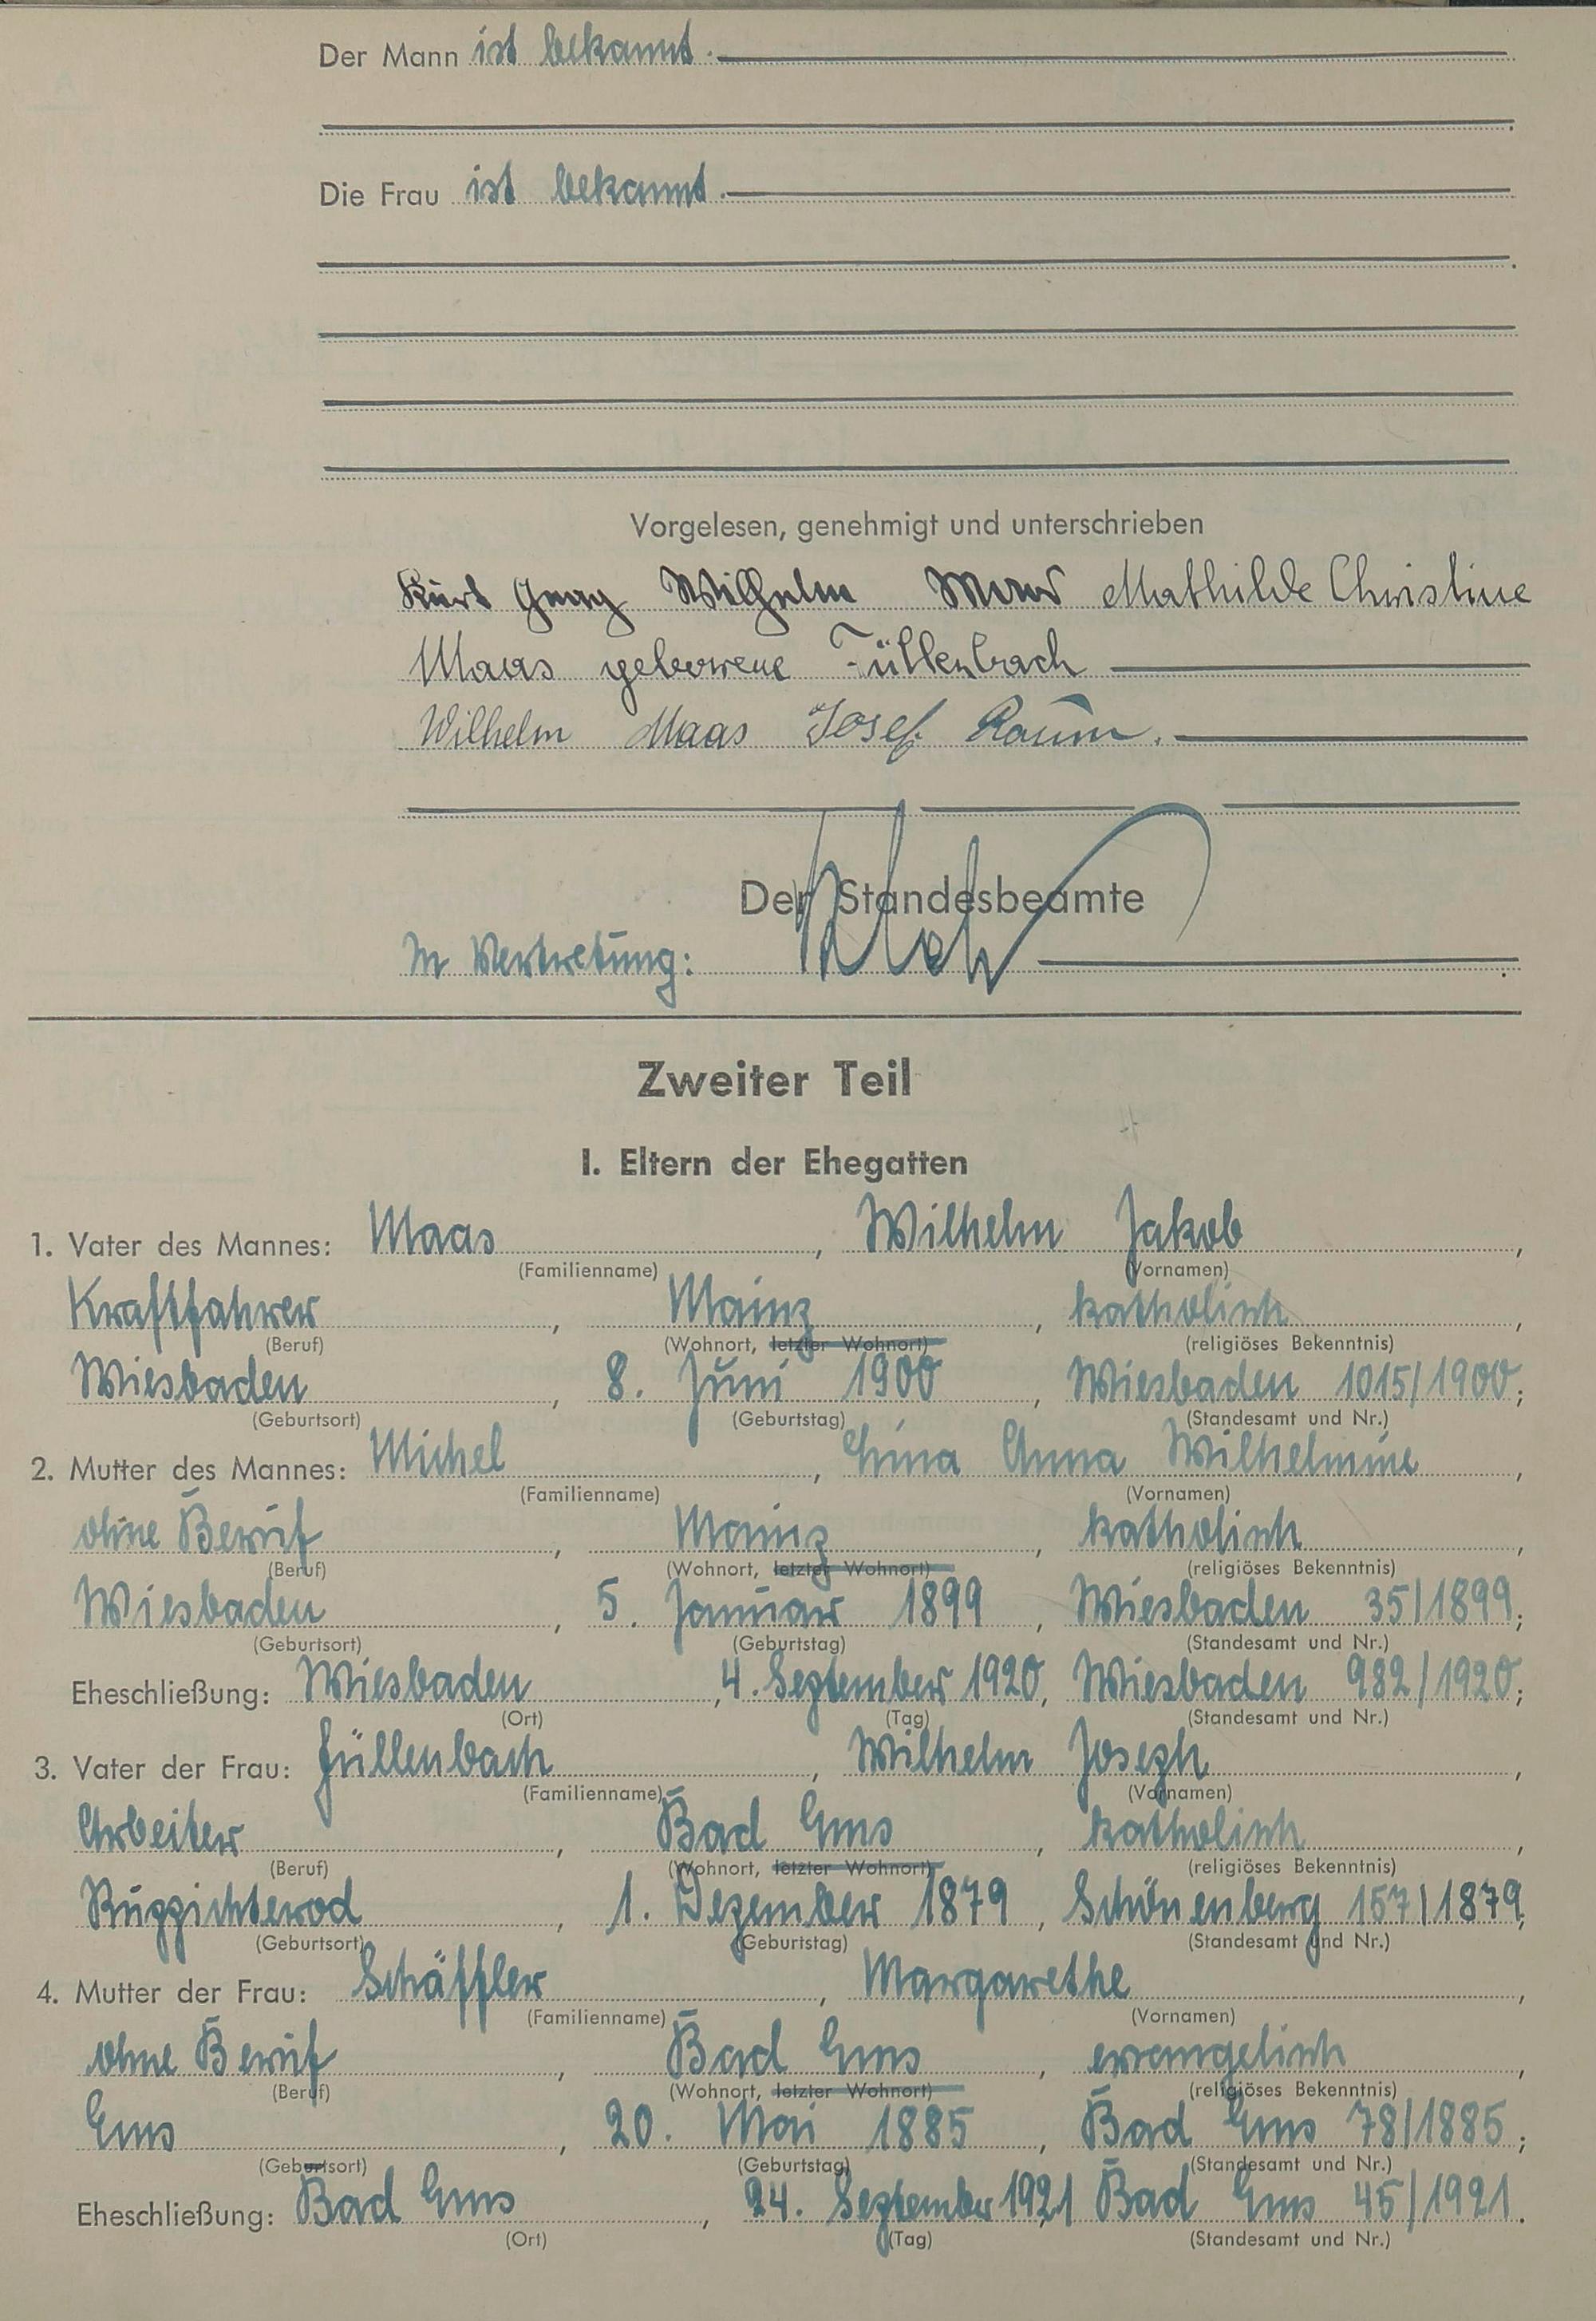 Der Mann ist bekannt.
Die Frau ist bekannt.
Vorgelesen, genehmigt und unterschrieben
Kurt Georg Wilhelm Maas Mathilde Christine
Maas geborene Füllenbach
Wilhelm Maas Josef Raum.
Der Standesbeamte
In Vertretung:
Zweiter Teil
I. Eltern der Ehegatten
1. Vater des Mannes: Maas, Wilhelm Jakob,
(Familienname) (Vornamen)
Kraftfahrer, Mainz, katholisch,
(Beruf) (Wohnort, letzter Wohnort) (religiöses Bekenntnis)
Wiesbaden, 8. Juni 1900, Wiesbaden 1015/1900;
(Geburtsort) (Geburtstag) (Standesamt und Nr.)
2. Mutter des Mannes: Michel, Lina Anna Wilhelmine,
(Familienname) (Vornamen)
ohne Beruf, Mainz, katholisch,
(Beruf) (Wohnort, letzter Wohnort) (religiöses Bekenntnis)
Wiesbaden, 5. Januar 1899, Wiesbaden 35/1899;
(Geburtsort) (Geburtstag) (Standesamt und Nr.)
Eheschließung: Wiesbaden, 4. September 1920, Wiesbaden 982/1920;
(Ort) (Tag) (Standesamt und Nr.)
3. Vater der Frau: Füllenbach, Wilhelm Joseph,
(Familienname) (Vornamen)
Arbeiter, Bad Ems, katholisch,
(Beruf) (Wohnort, letzter Wohnort) (religiöses Bekenntnis)
Ruppichterod, 1. Dezember 1879, Schönenberg 157/1879;
(Geburtsort) (Geburtstag) (Standesamt und Nr.)
4. Mutter der Frau: Schäffler, Margarethe,
(Familienname) (Vornamen)
ohne Beruf, Bad Ems, evangelisch,
(Beruf) (Wohnort, letzter Wohnort) (religiöses Bekenntnis)
Ems, 20. Mai 1885, Bad Ems 78/1885;
(Geburtsort) (Geburtstag) (Standesamt und Nr.)
Eheschließung: Bad Ems, 24. September 1921, Bad Ems 45/1921.
(Ort) (Tag) (Standesamt und Nr.)